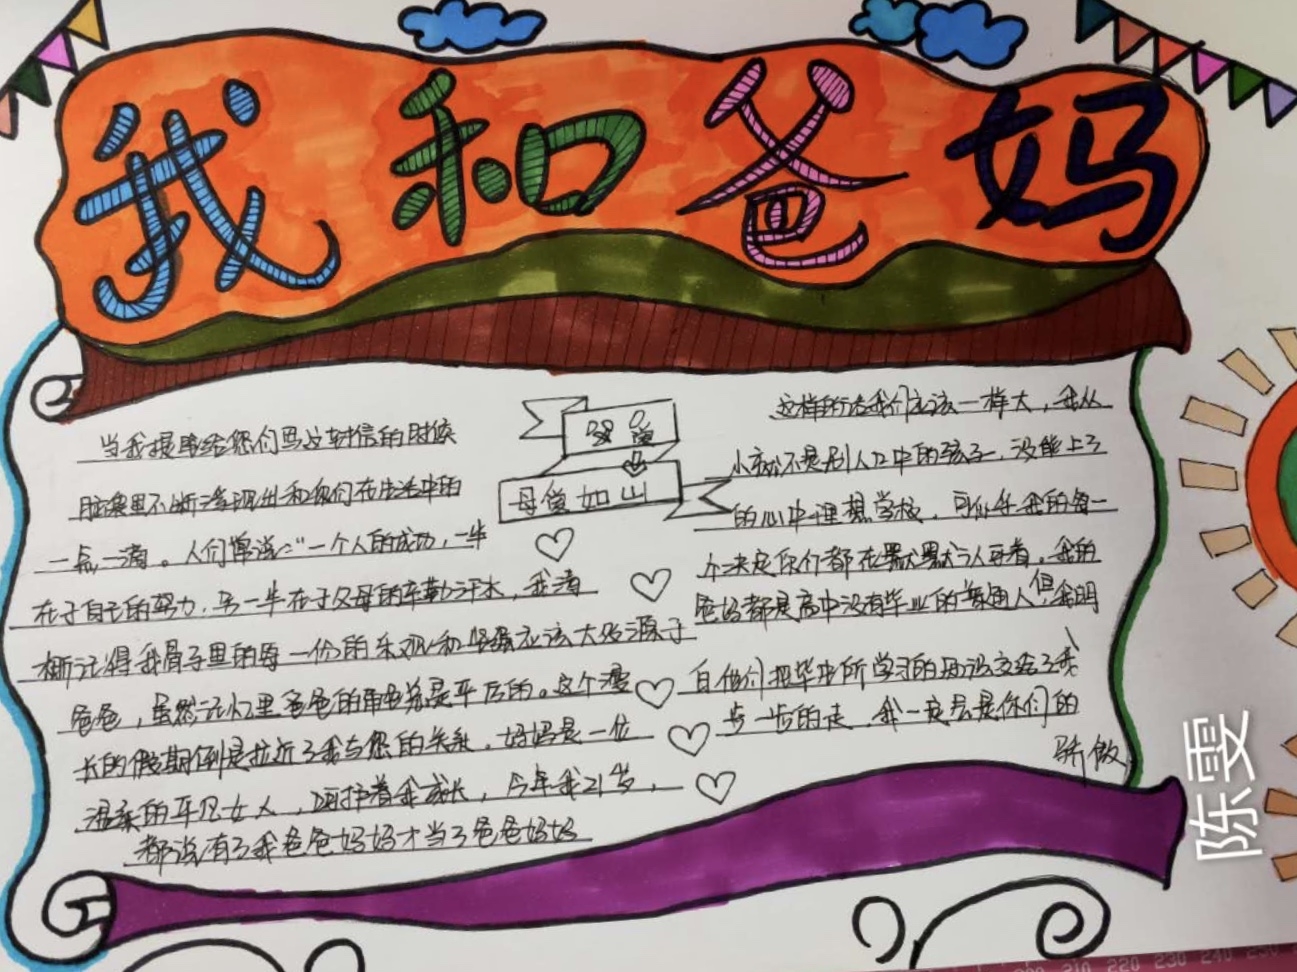 我和爸妈
当我提笔给您们写这封信的时候
脑海里不断涌现出和你们在生活中的
一点一滴。人们常说:"一个人的成功,一半
在于自己的努力,另一半在于父母的辛勤汗水,我清
晰记得我骨子里的每一份的乐观和坚强应该大多源于
爸爸,虽然记忆里爸爸的背总是平后的。这个漫
长的假期倒是拉近了我与您的关系。妈妈是一位
温柔的平凡女人,呵护着我成长,今年我21岁,
都说有了我爸爸妈妈才当了爸爸妈妈
母爱如山
这样的话我们应该一样大,我从
小就不是别人口中的孩子,没能上了
的心中理想学校,可似乎我的每一
个决定你们都在默默认可着。我的
爸妈都是高中没有毕业的普通人但我明
白他们把毕生所学习的知识交给了我
步一步的走,我一定会是你们的
骄傲
陈雯
210 220 230 240 250